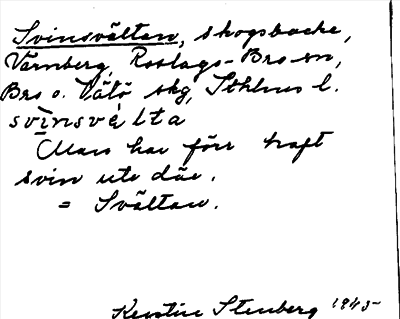 Svinsvältan, skogsbacke,
Värnberg, Roslags-Bro sn,
Bro o. Vätö skg, Sthlms l.
svinsvèlta
Man har förr haft
svin ute där.
= Svältan.
Kerstin Stenberg 1945